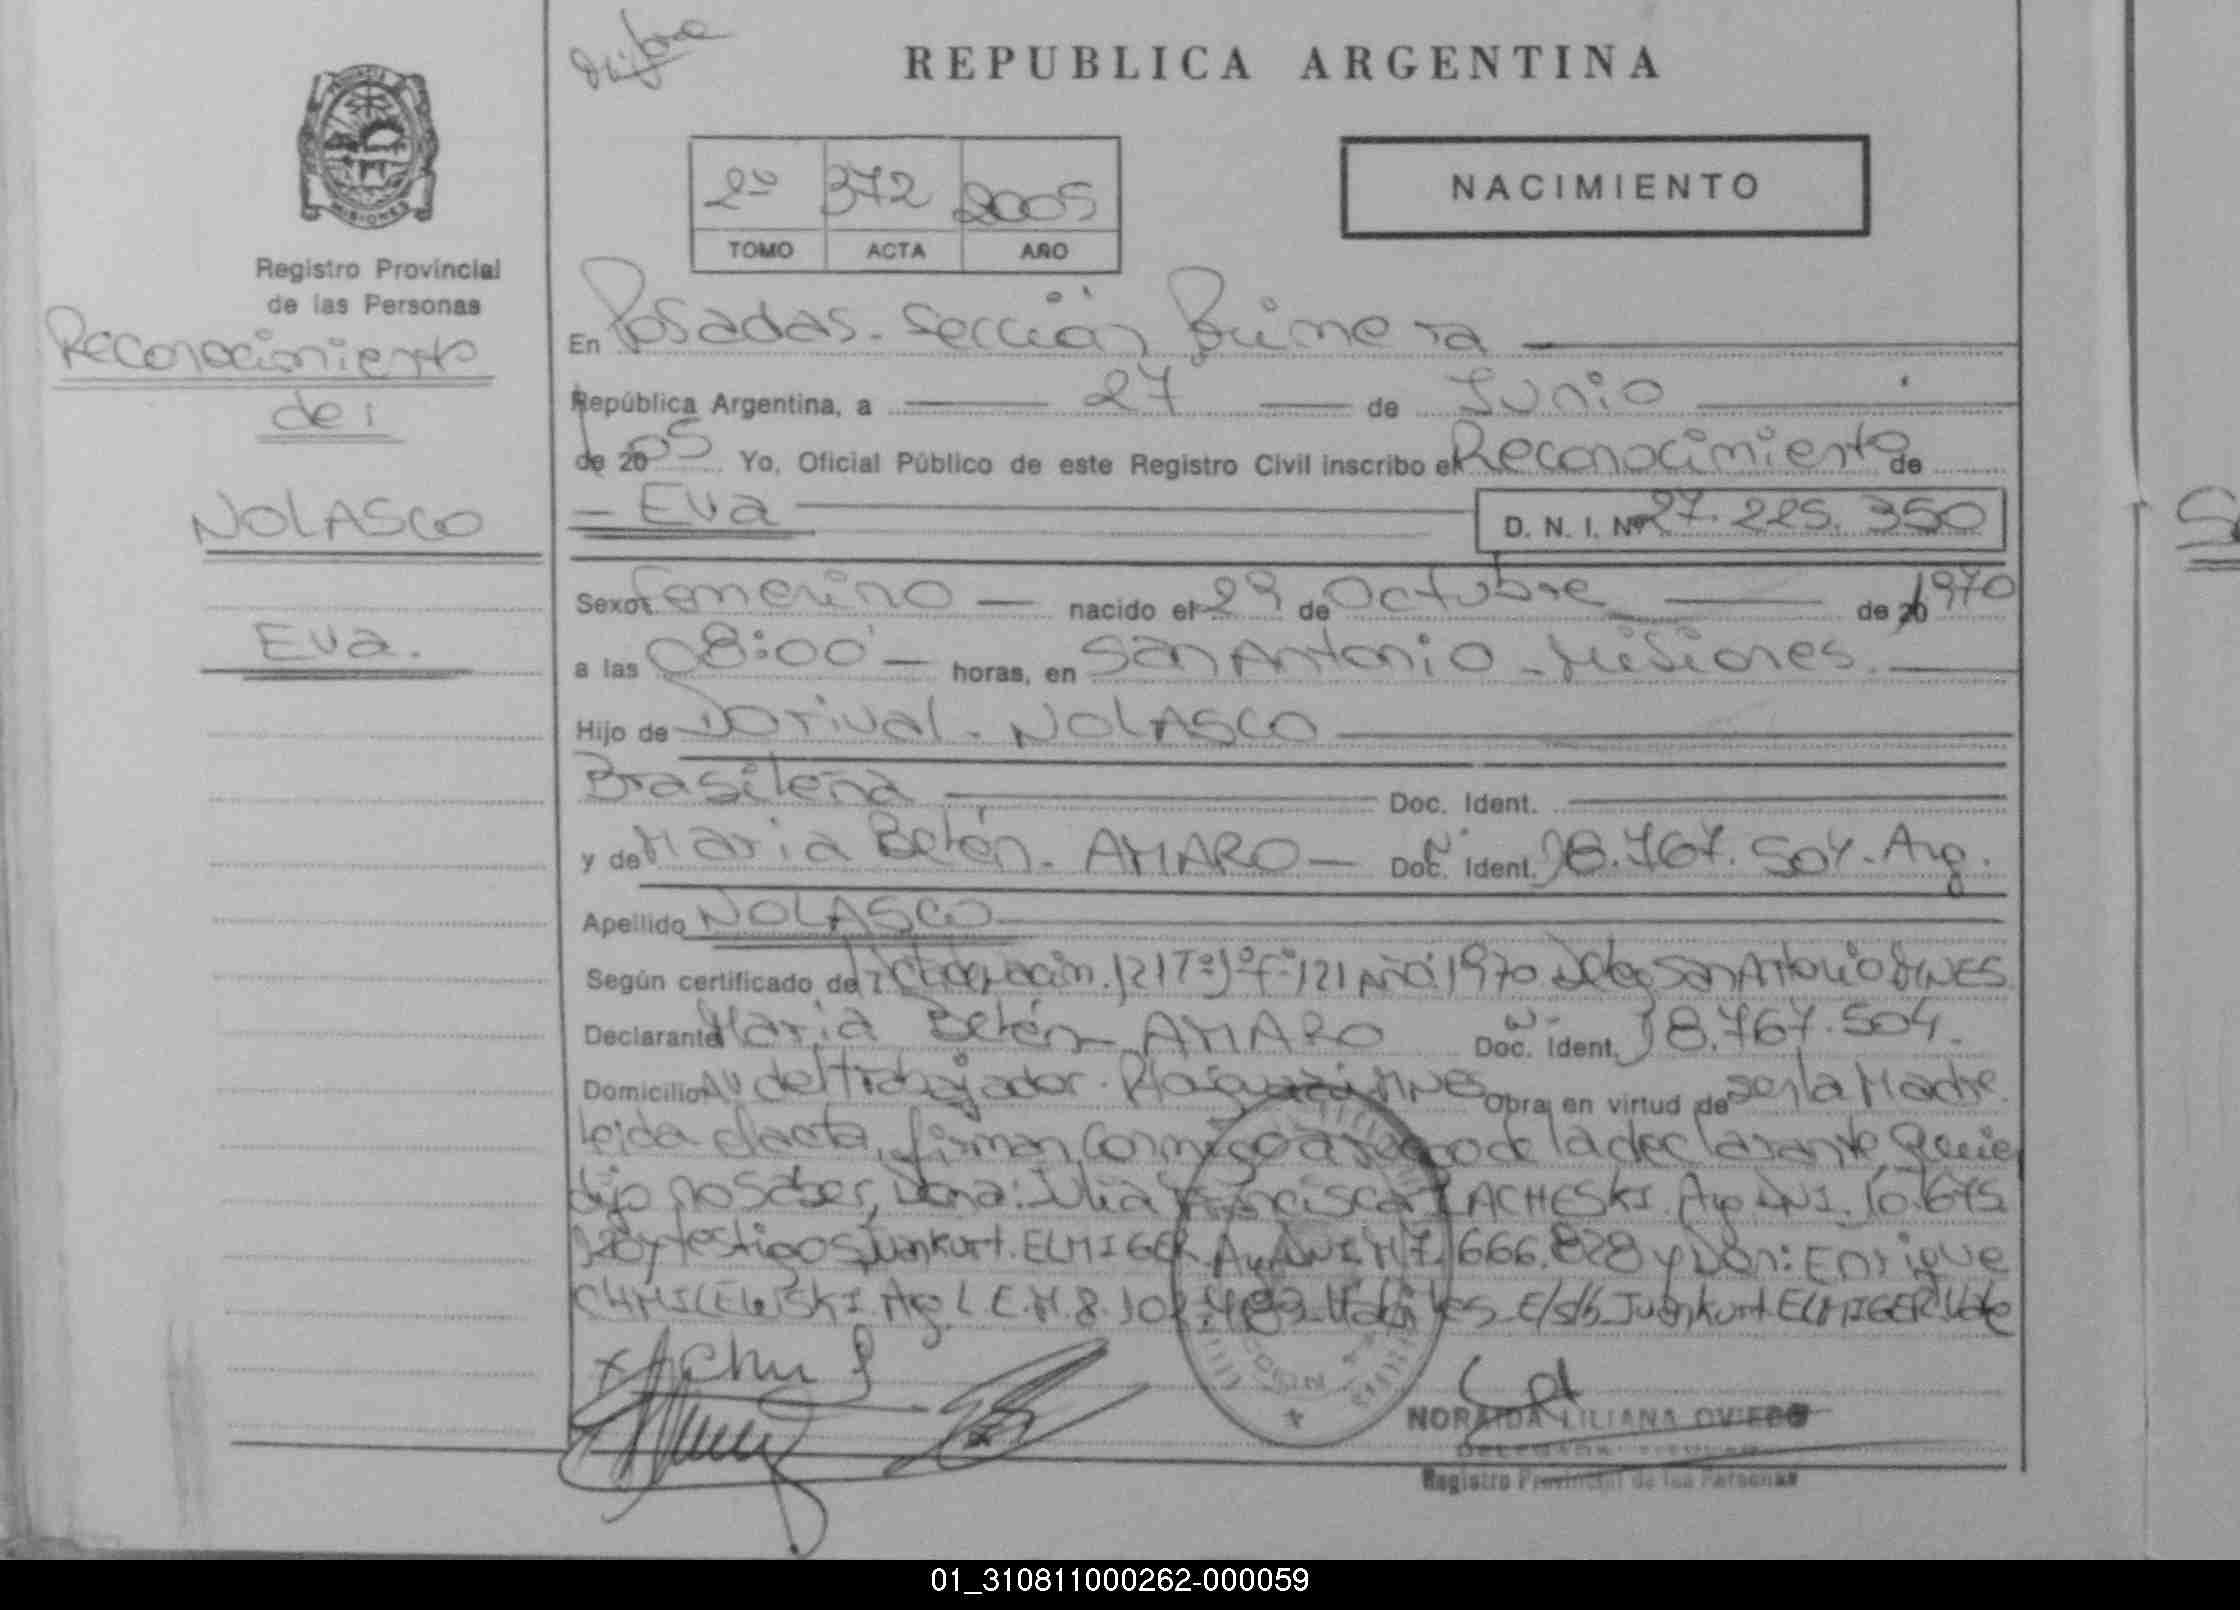 REPUBLICA ARGENTINA
2º 372 2005
TOMO ACTA AÑO
NACIMIENTO
MISIONES
Registro Provincial
de las Personas
Reconocimiento
de:
NOLASCO
Eva.
En Posadas. Sección Primera
República Argentina, a 27 de Junio
de 2005 Yo, Oficial Público de este Registro Civil inscribo el Reconocimiento de
Eva D. N. I. Nº 27.225.350
Sexo Femenino nacido el 29 de Octubre de 1970
a las 08:00 horas, en San Antonio - Misiones.
Hijo de Dorival - NOLASCO
Brasileña Doc. Ident.
y de Maria Belén - AMARO Doc. Ident. 18.767.504. Arg.
Apellido NOLASCO
Según certificado de 121 Tº 1º fº 121 Año 1970 San Antonio MNES
Declarante Maria Belén - AMARO Doc. Ident. 18.767.504.
Domicilio Av del trabajador. MNES Obra en virtud de ser la Madre.
leida el acta, firman conmigo a ruego de la declarante Quien
dijo no saber, Doña: Julia Francisca LACHESKI. Arg DNI. 10.675
y testigos Juan Kurt. ELMIGER. Arg DNI M 7.666.828 y Don: Enrique
CHMILEWSKI. Arg L.E.M. 8. Habiles. E/s/b Juan Kurt ELMIGER. Vale
NORAIDA LILIANA OVIEDO
DELEGADA TITULAR
Registro Provincial de las Personas
01_310811000262-000059